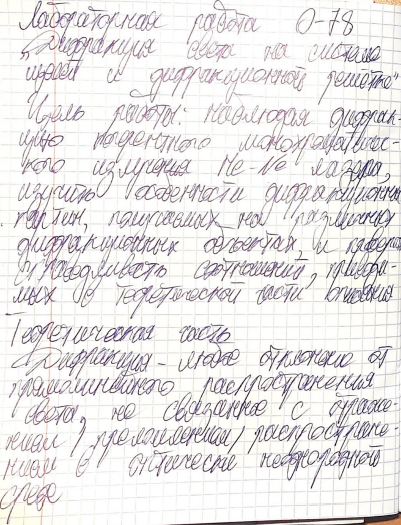 Лабораторная работа О-78
„Дифракция света на системе
щелей и дифракционной решётке"
Цель работы: наблюдая дифрак-
цию когерентного монохроматичес-
кого излучения He-Ne лазера,
изучить особенности дифракционных
картин, получаемых на различных
дифракционных объектах, и
справедливость соотношений, приводи-
мых в теоретической части описания
Теоретическая часть
Дифракция - любое отклонение от
прямолинейного распространения
света, не связанное с отраже-
нием, преломлением, распростране-
нием в оптически неоднородной
среде